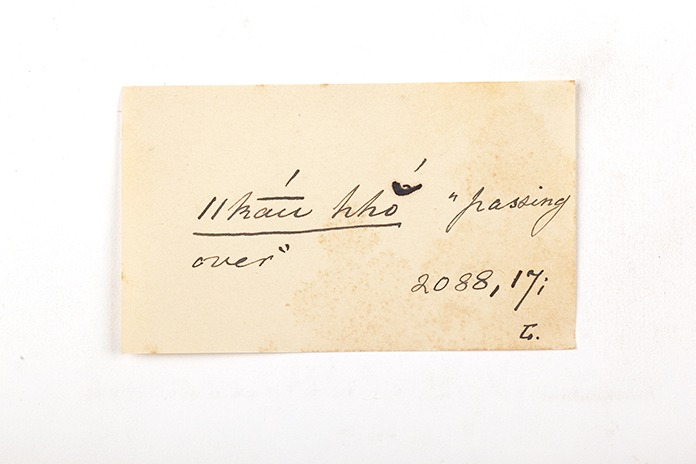 ǁkā́u hhŏ́ "passing
over"
2088, 17;
T.